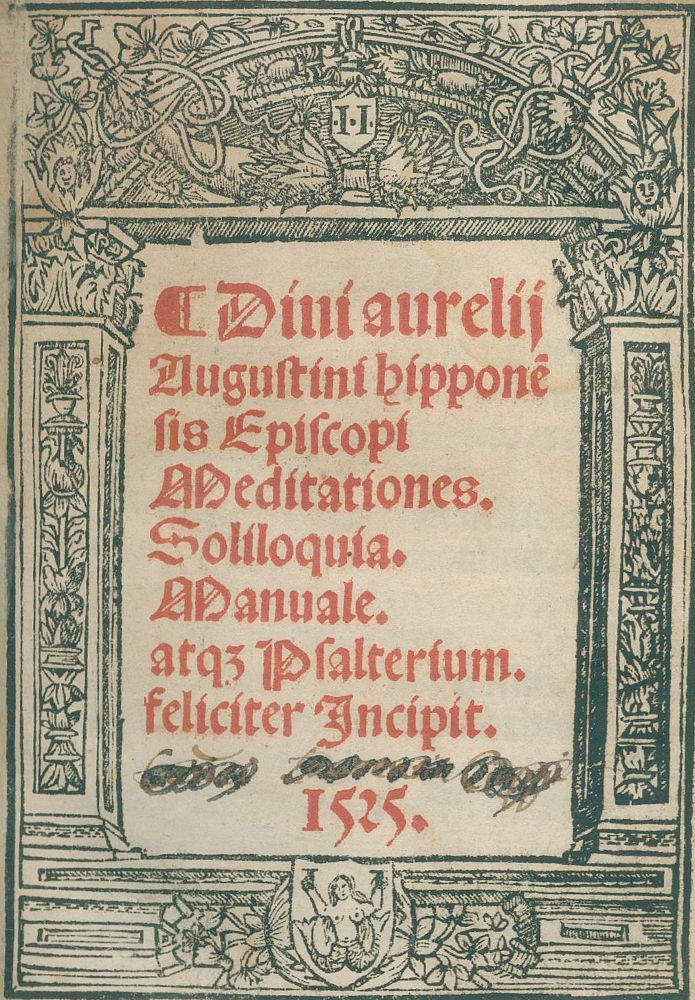 I·I
⁋ Diui aurelij
Auguſtini hipponē
ſis Epiſcopi
Meditationes.
Soliloquia.
Manuale.
atqꝫ Pſalterium.
feliciter Incipit.
1525.